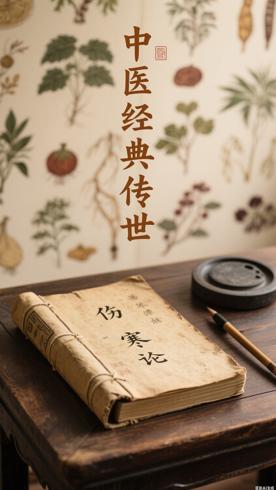 中医经典传世
伤寒论